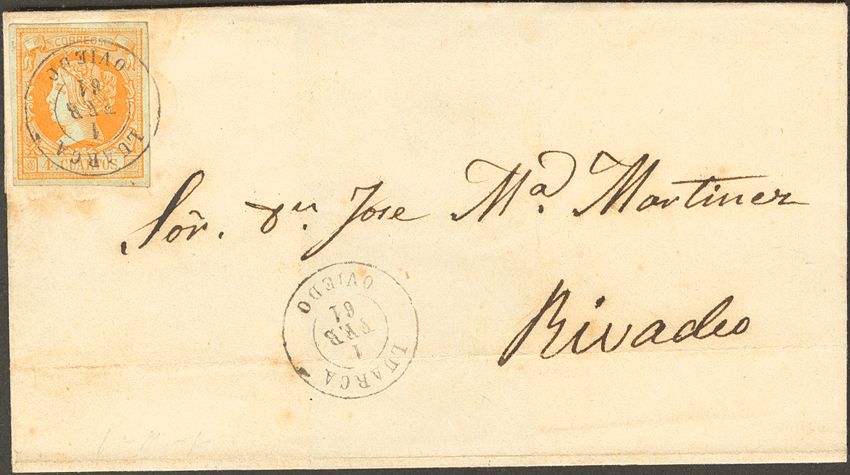 CORREOS
4 CUARTOS
LUARCA
1
FEB
61
OVIEDO
Sōr. Dn. Jose Mª. Martinez
Rivadeo
LUARCA
1
FEB
61
OVIEDO